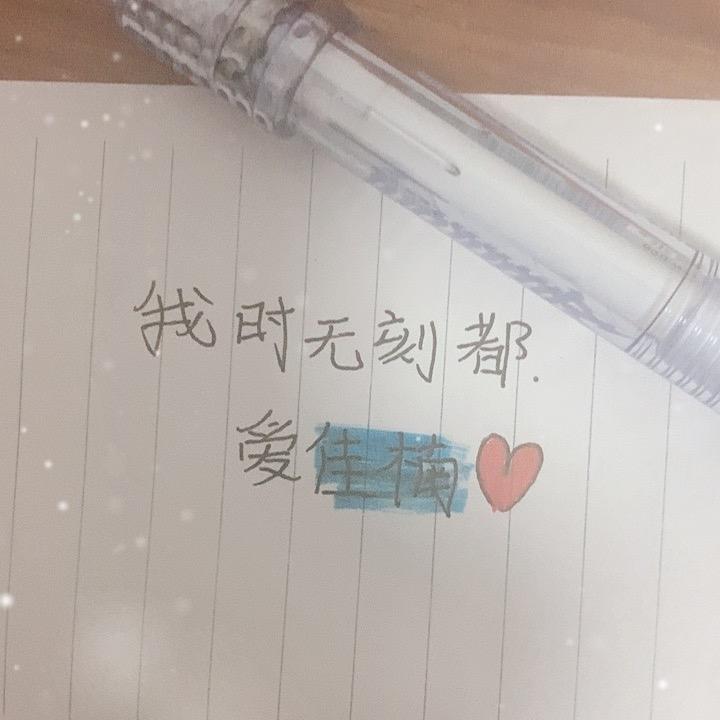 我时无刻都.
爱佳楠